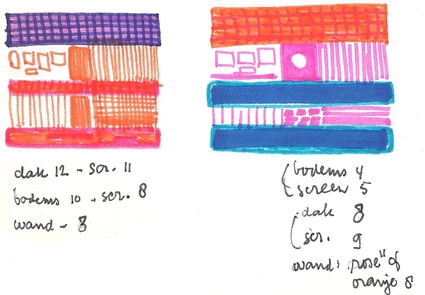 dak 12 - scr. 11
bodems 10 - scr. 8
wand - 8
bodems 4
screen 5
dak 8
scr. 9
wand: "rose" of
orange 8